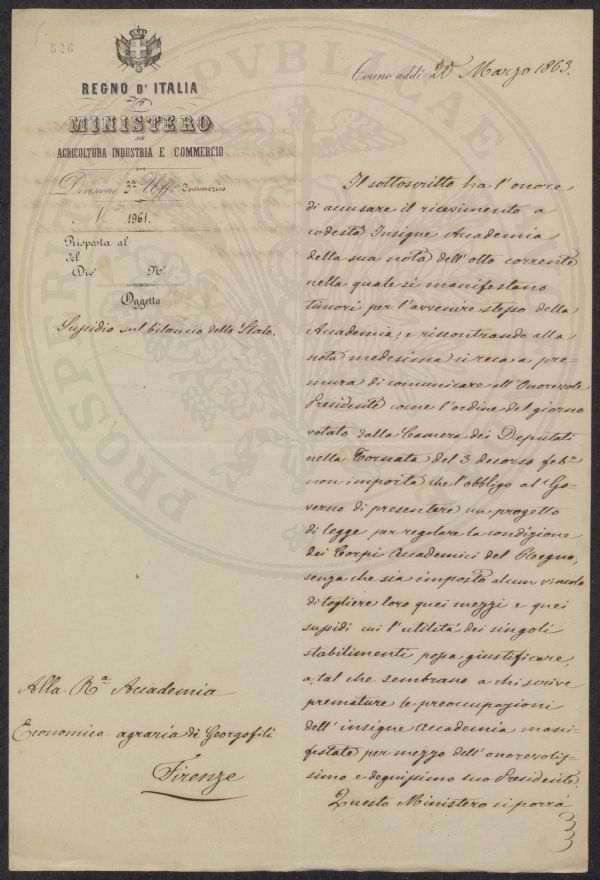 526
REGNO D'ITALIA
MINISTERO
DI
AGRICOLTURA INDUSTRIA E COMMERCIO
Divisione 3ª Uffº Commercio
Nº 1961.
Risposta al
del
Divª Nº
Oggetto
Sussidio sul bilancio dello Stato.
Torino addì 20 Marzo 1863.
Il sottoscritto ha l'onore
di accusare il ricevimento a
codesta Insigne Accademia
della sua nota dell'otto corrente
nella quale si manifestano
timori per l'avvenire stesso della
Accademia; e riscontrando alla
nota medesima si reca a pre-
mura di comunicare all'Onorevole
Presidente come l'ordine del giorno
votato dalla Camera dei Deputati
nella Tornata del 3 decorso febº
non importa che l'obbligo al Go-
verno di presentare un progetto
di legge per regolare la condizione
dei Corpi Accademici del Regno,
senza che sia imposto alcun vincolo
di togliere loro quei mezzi e quei
sussidi cui l'utilità dei singoli
stabilimenti possa giustificare,
a tal che sembrano a chi scrive
premature le preoccupazioni
dell'insigne Accademia mani-
festate per mezzo dell'onorevolis-
simo e degnissimo suo Presidente.
Questo Ministero si porrà
Alla Rª Accademia
Economico agraria di Georgofili
Firenze
PROSPERITATI PUBLICAE